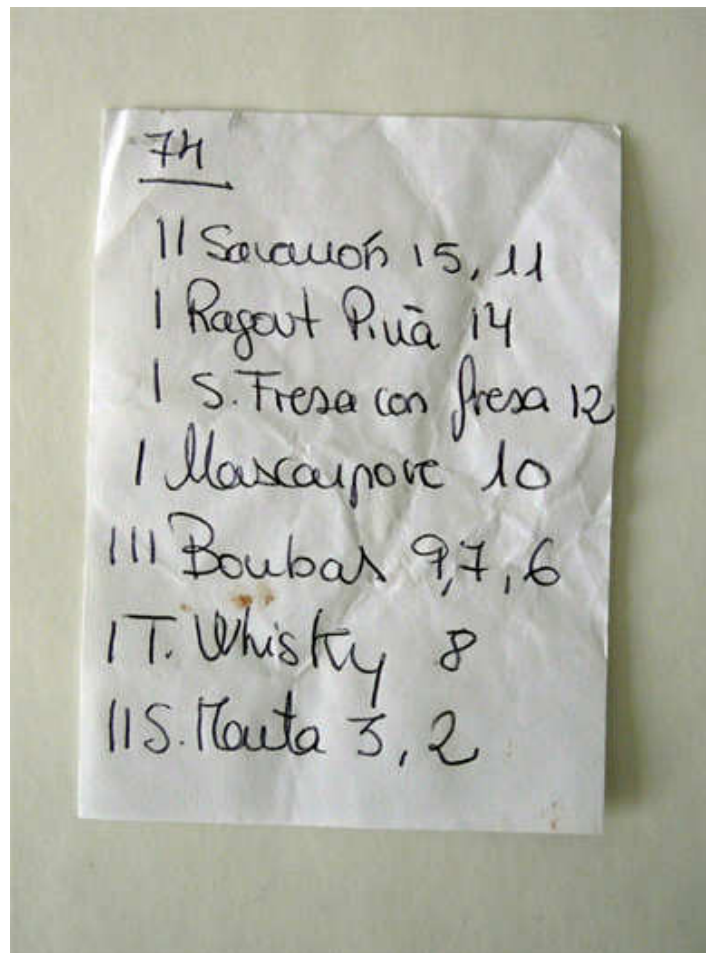 74
II Savauoń 15, 11
I Ragout Piña 14
I S. Fresa con fresa 12
I Mascarpore 10
III Boubas 9,7,6
I T. Whisky 8
II S. Mauta 3, 2